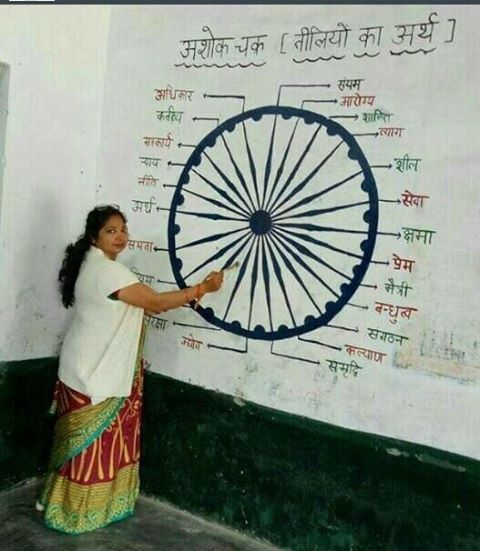 अशोक चक्र [तीलियों का अर्थ]
संयम
आरोग्य
शान्ति
त्याग
शील
सेवा
क्षमा
प्रेम
मैत्री
बन्धुत्व
संगठन
कल्याण
समृद्धि
उद्योग
सुरक्षा
नियम
समता
अर्थ
नीति
न्याय
सहकार्य
कर्तव्य
अधिकार